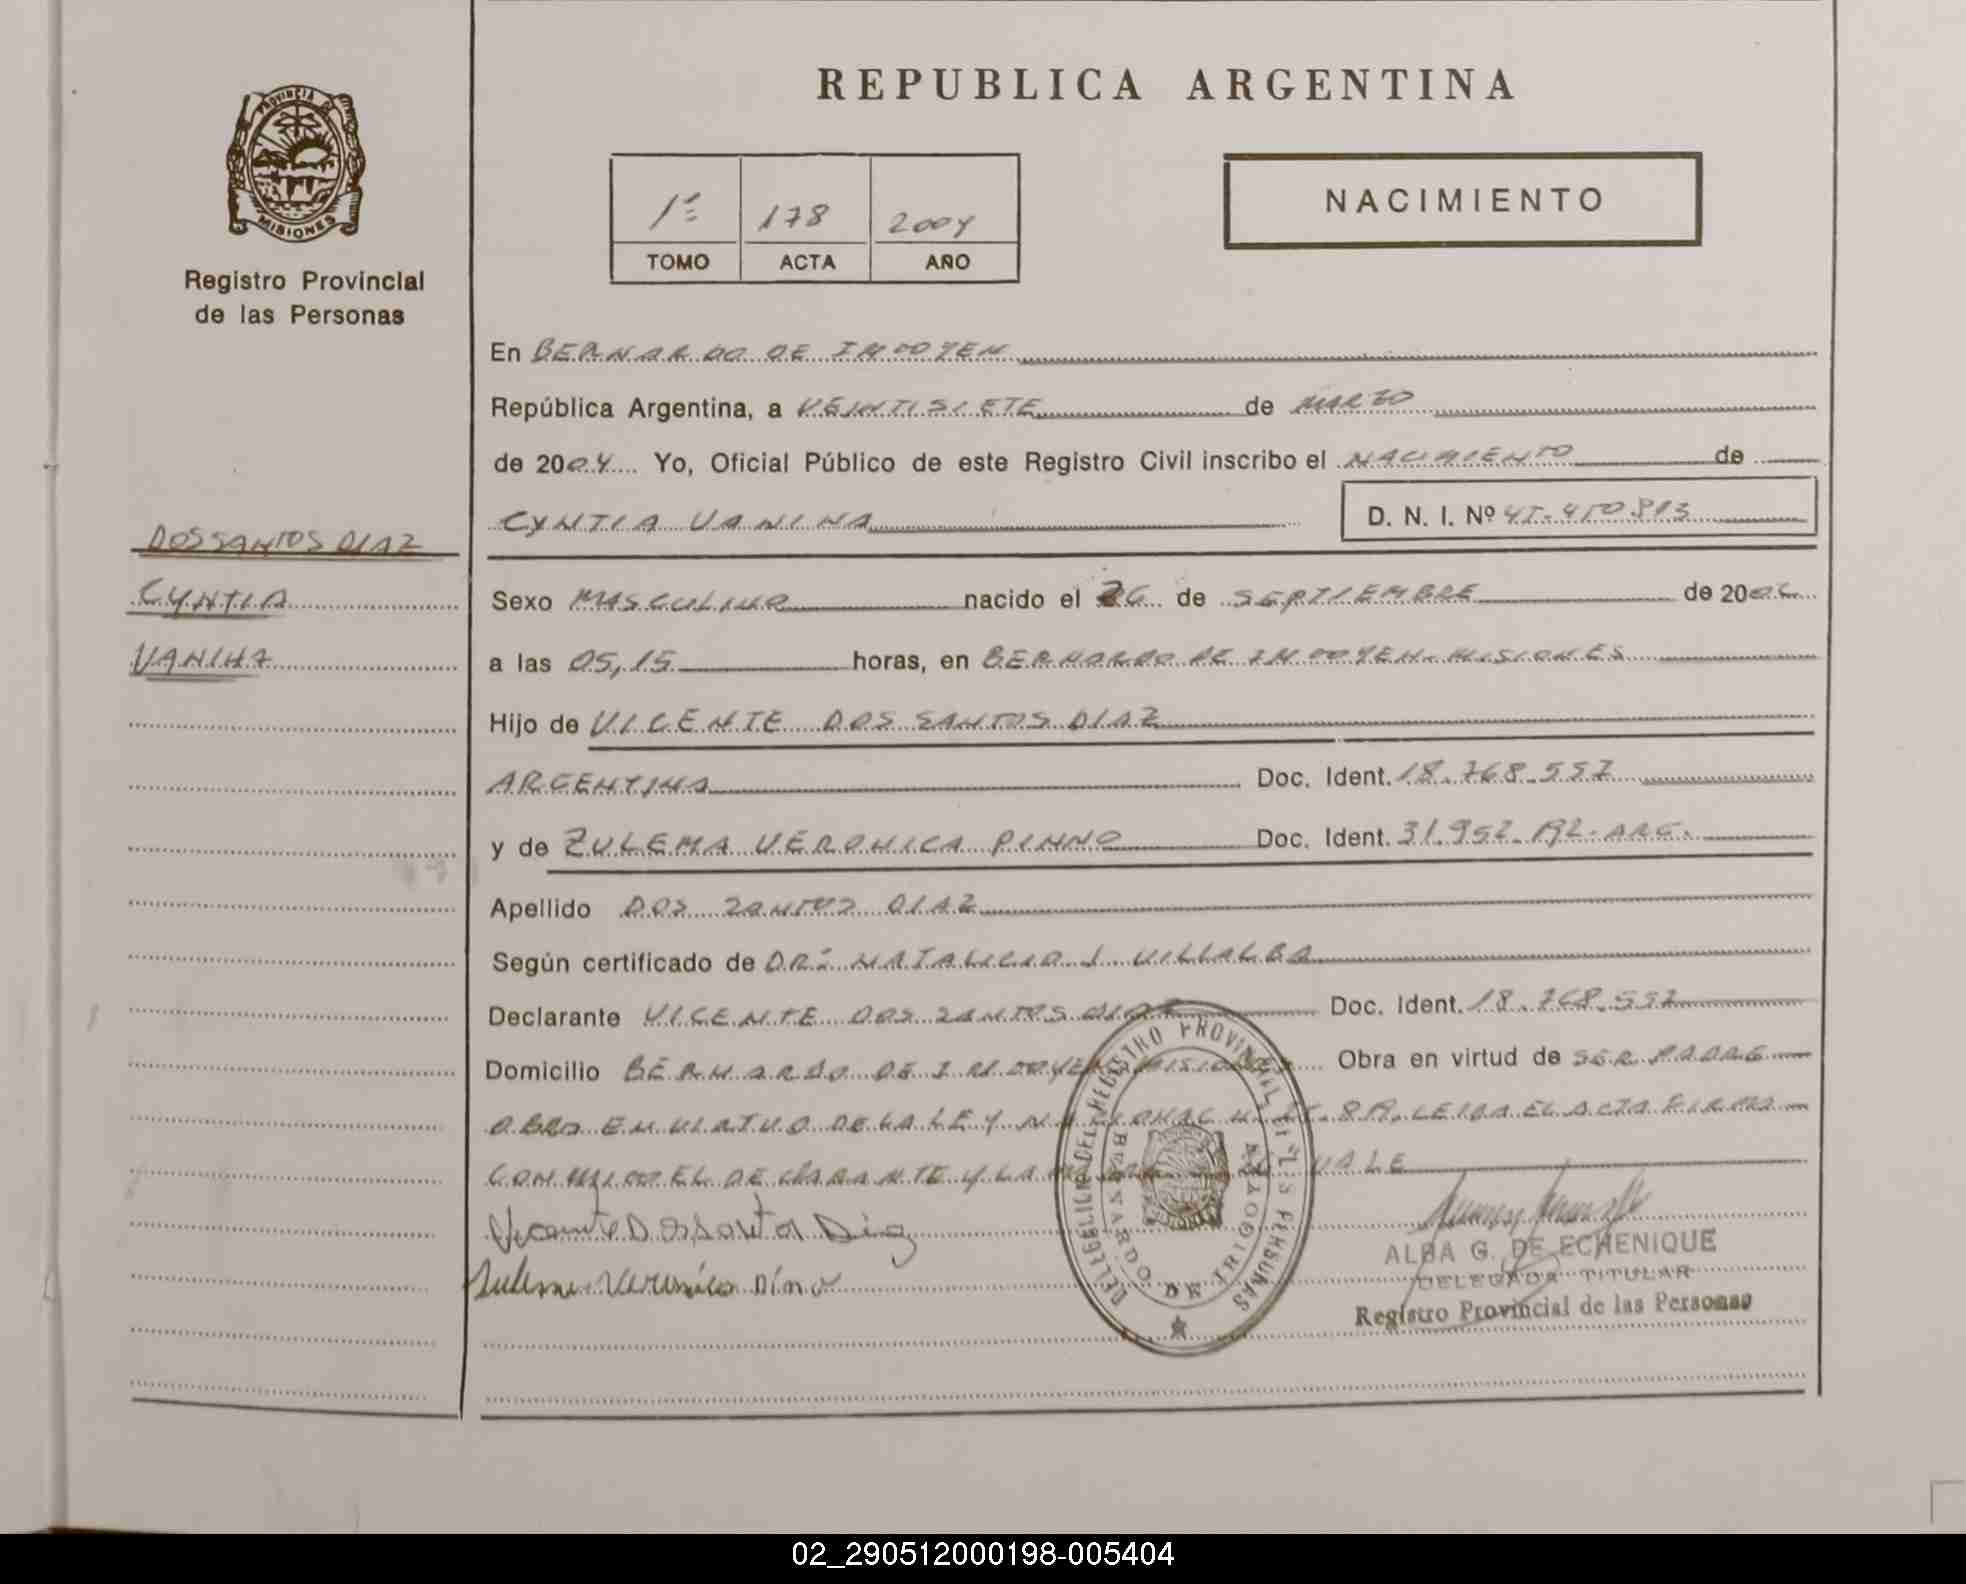 REPUBLICA ARGENTINA
PROVINCIA DE
MISIONES
Registro Provincial
de las Personas
1º 178 2004
TOMO ACTA AÑO
NACIMIENTO
En BERNARDO DE IRIGOYEN
República Argentina, a VEINTISIETE de MARZO
de 2004 Yo, Oficial Público de este Registro Civil inscribo el NACIMIENTO de
CYNTIA VANINA
D. N. I. Nº
DOS SANTOS DIAZ
CYNTIA
VANINA
Sexo MASCULINO nacido el 26 de SEPTIEMBRE de 20
a las 05,15 horas, en BERNARDO DE IRIGOYEN-MISIONES
Hijo de VICENTE DOS SANTOS DIAZ
ARGENTINA Doc. Ident. 18.768.557
y de ZULEMA VERONICA PINNO Doc. Ident. 31.952. ARG.
Apellido DOS SANTOS DIAZ
Según certificado de DRª NATALICIA J. VILLALBA
Declarante VICENTE DOS SANTOS DIAZ Doc. Ident. 18.768.557
Domicilio BERNARDO DE IRIGOYEN MISIONES Obra en virtud de SER PADRE
OBRO EN VIRTUD DE LA LEY NACIONAL LEIDA EL ACTA FIRMA
CONMIGO EL DECLARANTE Y LA VALE
Vicente Dos Santos Diaz
Sulema Veronica
DELEGACION DEL REGISTRO PROVINCIAL DE LAS PERSONAS
BERNARDO DE IRIGOYEN
ALBA G. DE ECHENIQUE
DELEGADA TITULAR
Registro Provincial de las Personas
02_290512000198-005404